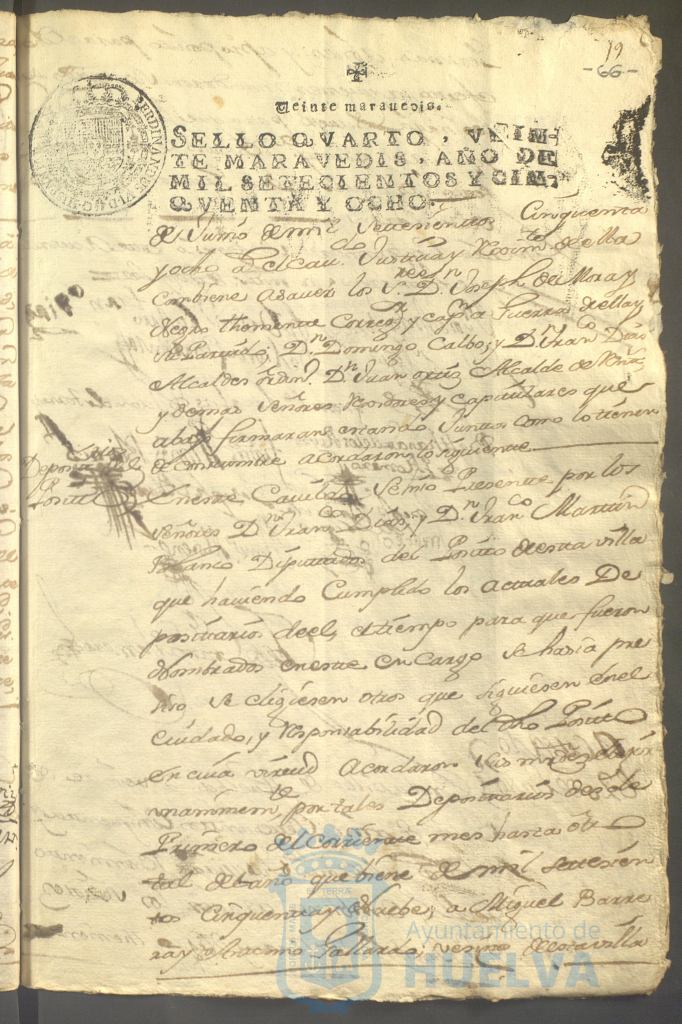 19
-66-
Veinte maravedis.
SELLO QVARTO, VEIN-
TE MARAVEDIS, AÑO DE
MIL SETECIENTOS Y CIN-
QVENTA Y OCHO.
de Junio de mil setecientos Cinquenta
y ocho Justicia y de
Combiene asaver los Sres Dn Joseph de Mora y
Negro thiniente Correxr y capn a Guerra della y
su Partido; Dn Domingo Calbo, y Dn Franco Dias
Alcaldes ordins Dn Juan ortiz Alcalde de
y demas señores y capitulares que
abajo firmaran estando Juntos como lo tienen
de costumbre acordaron lo siguiente
Deposits del
Posito
En este Cavildo se hiso Presente por los
señores Dn Franco Dias, y Dn Franco Martin
Blanco Diputados del Posito de esta villa
que haviendo Cumplido los actuales De
positarios de el, el tiempo para que fueron
Nombrados en este en Cargo se hasia pre
siso se eligiesen otros que siguiesen en el
Cuidado, y responsabilidad del dho Posito
En cuia virtud Acordaron sus mrdes
unanimemte por tales Depositarios desde
Primero del Corriente mes hasta otro
tal de el año que biene de mil setesien
tos Cinquenta y nuebe, a Miguel Barre
ra y Gallardo, vesinos de esta villa
Ayuntamiento de
HUELVA